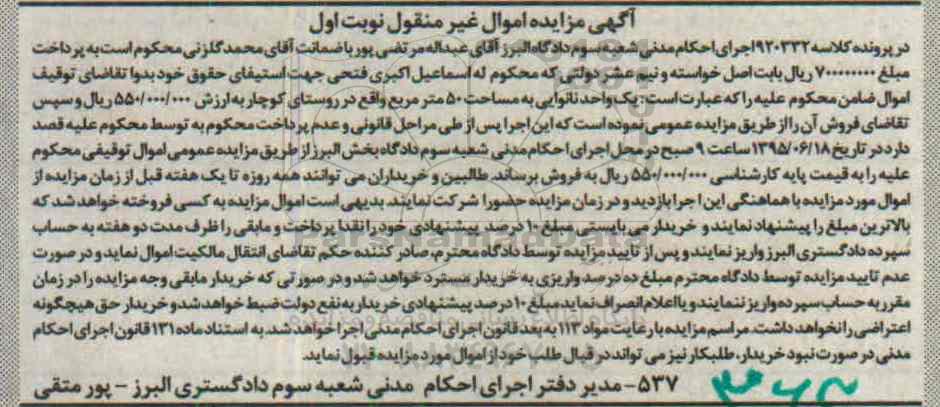 آگهی مزایده اموال غیر منقول نوبت اول
در پرونده کلاسه ۹۲۰۳۳۲ اجرای احکام مدنی شعبه سوم دادگاه البرز آقای عبداله مرتضی پور با ضمانت آقای محمد گلزنی محکوم است به پرداخت
مبلغ ۷۰۰۰۰۰۰۰۰ ریال بابت اصل خواسته و نیم عشر دولتی که محکوم له اسماعیل اکبری فتحی جهت استیفای حقوق خود بدوا تقاضای توقیف
اموال ضامن محکوم علیه را که عبارت است: یک واحد نانوایی به مساحت ۵۰ متر مربع واقع در روستای کوچار به ارزش ۵۵۰/۰۰۰/۰۰۰ ریال و سپس
تقاضای فروش آن را از طریق مزایده عمومی نموده است که این اجرا پس از طی مراحل قانونی و عدم پرداخت محکوم به توسط محکوم علیه قصد
دارد در تاریخ ۱۳۹۵/۰۶/۱۸ ساعت ۹ صبح در محل اجرای احکام مدنی شعبه سوم دادگاه بخش البرز از طریق مزایده عمومی اموال توقیفی محکوم
علیه را به قیمت پایه کارشناسی ۵۵۰/۰۰۰/۰۰۰ ریال به فروش برساند. طالبین و خریداران می توانند همه روزه تا یک هفته قبل از زمان مزایده از
اموال مورد مزایده با هماهنگی این اجرا بازدید و در زمان مزایده حضورا شرکت نمایند. بدیهی است اموال مزایده به کسی فروخته خواهد شد که
بالاترین مبلغ را پیشنهاد نمایند و خریدار می بایستی مبلغ ۱۰ درصد پیشنهادی خود را نقدا پرداخت و مابقی را ظرف مدت دو هفته به حساب
سپرده دادگستری البرز واریز نمایند و پس از تایید مزایده توسط دادگاه محترم، صادر کننده حکم تقاضای انتقال مالکیت اموال نماید و در صورت
عدم تایید مزایده توسط دادگاه محترم مبلغ ده درصد واریزی به خریدار مسترد خواهد شد و در صورتی که خریدار مابقی وجه مزایده را در زمان
مقرر به حساب سپرده واریز ننمایند و یا اعلام انصراف نماید مبلغ ۱۰ درصد پیشنهادی خریدار به نفع دولت ضبط خواهد شد و خریدار حق هیچگونه
اعتراضی را نخواهد داشت. مراسم مزایده با رعایت مواد ۱۱۳ به بعد قانون اجرای احکام مدنی اجرا خواهد شد. به استناد ماده ۱۳۱ قانون اجرای احکام
مدنی در صورت نبود خریدار، طلبکار نیز می تواند در قبال طلب خود از اموال مورد مزایده قبول نماید.
۵۳۷- مدیر دفتر اجرای احکام مدنی شعبه سوم دادگستری البرز - پور متقی